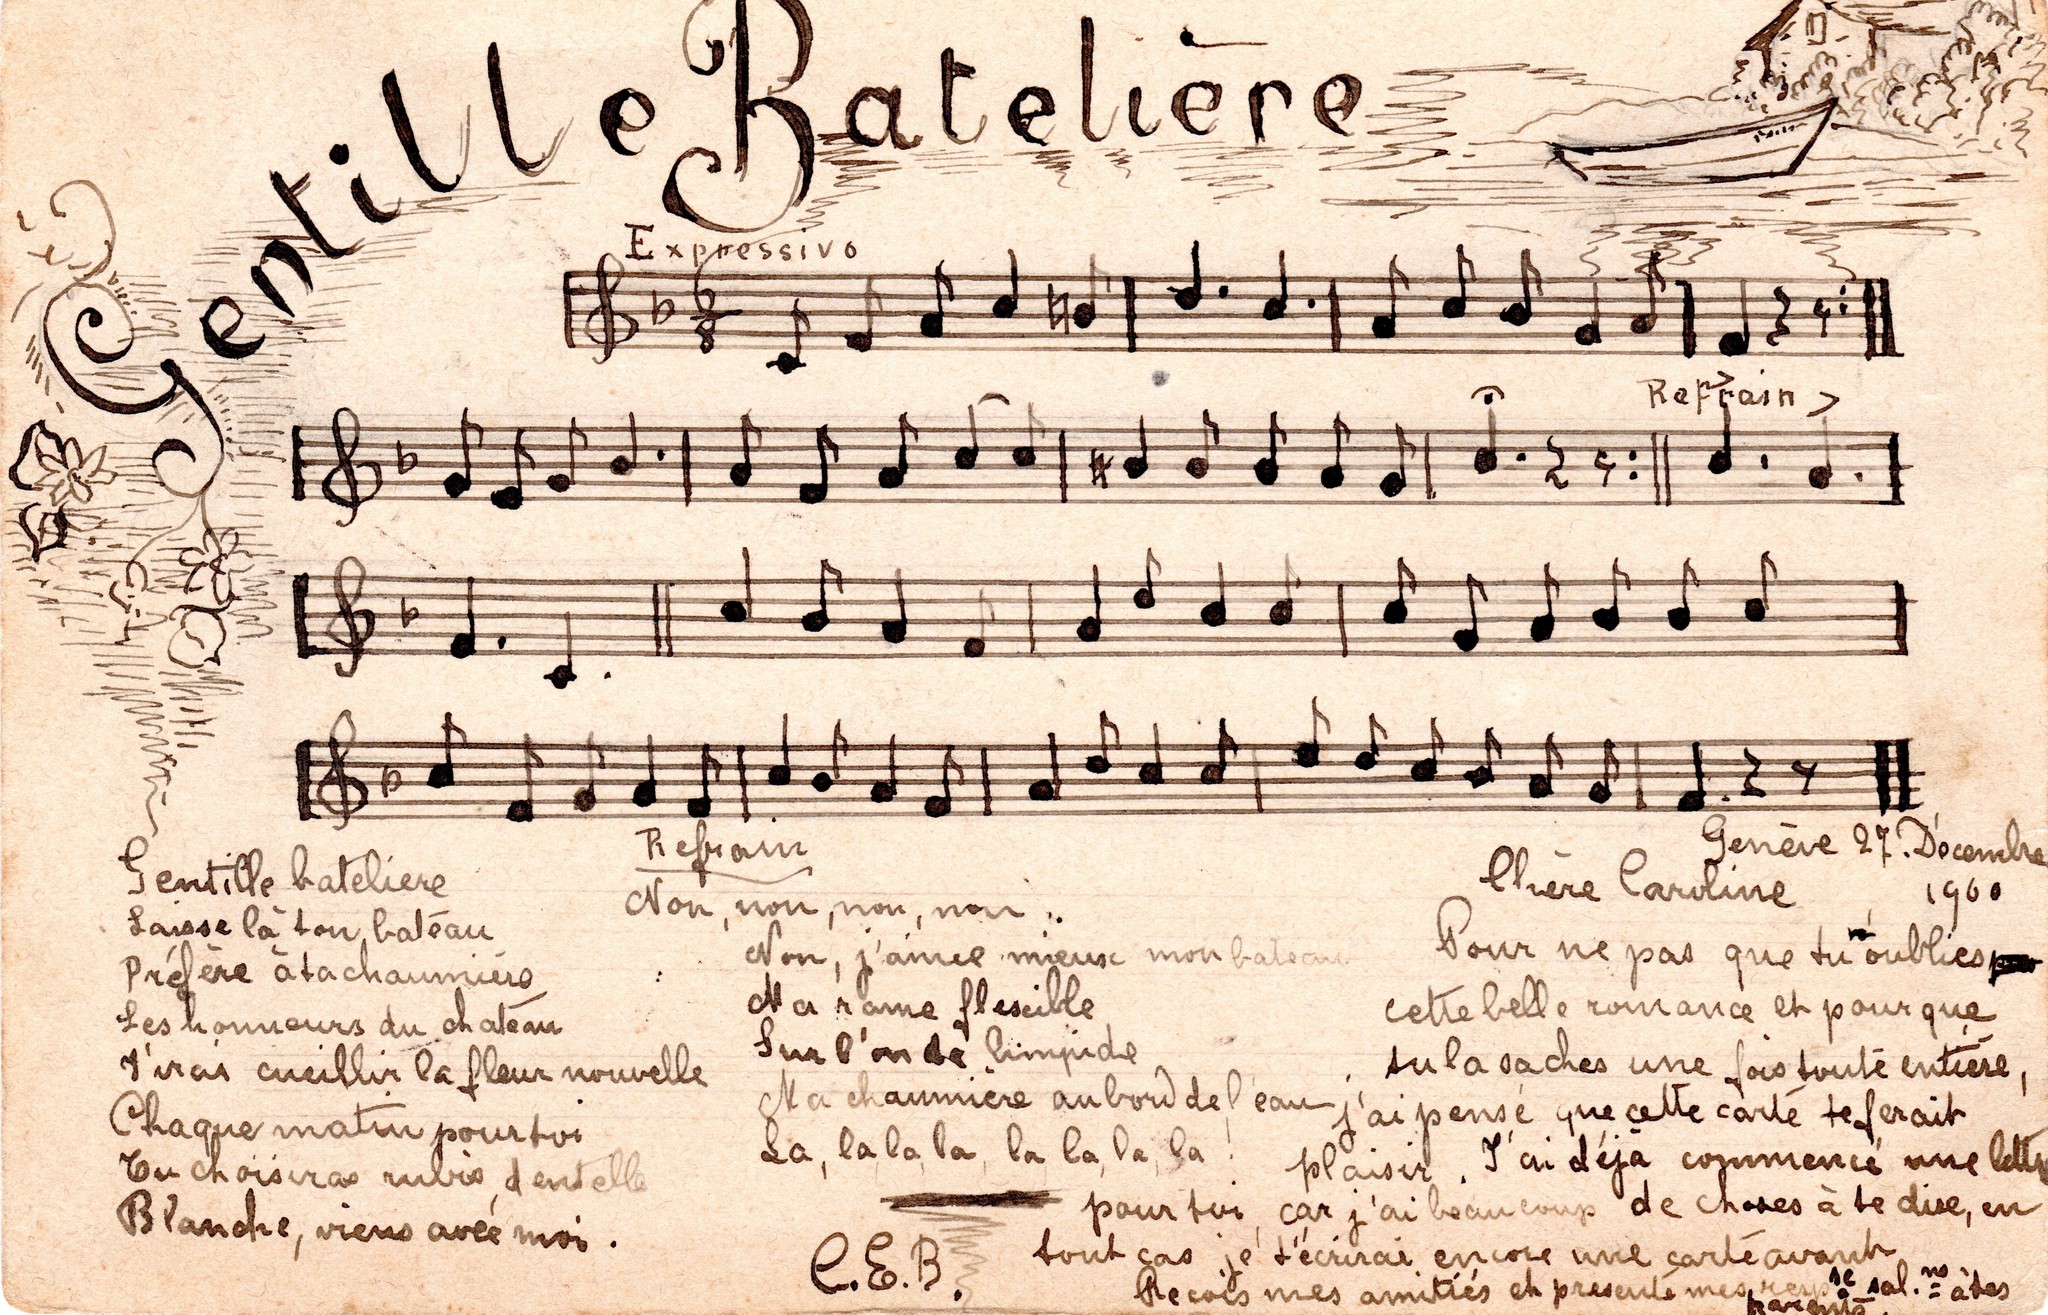 Gentille Batelière
Expressivo
Refrain
Gentille bateliere
Laisse là ton batéau
Préfère à ta chaumière
Les honneurs du chatéau
J'irai cueillir la fleur nouvelle
Chaque matin pour toi
Tu choisiras rubis, dentelle
Blanche, viens avec moi.
Refrain
Non, non, non, non..
Non, j'aime mieux mon bateau
Ma rame flexible
Sur l'onde limpide
Ma chaumière au bord de l'eau
La, la la la, la la, la, la !
C.E.B.
Genève 27. Décembre
1900
Chère Caroline
Pour ne pas que tu n'oublies
cette belle romance et pour que
tu la saches une fois toute entière,
j'ai pensé que cette carte te ferait
plaisir. J'ai déjà commencé une lettre
pour toi car j'ai beaucoup de choses à te dire, en
tout cas je t'écrirai encore une carte avant
Reçois mes amitiés et présente mes resp.se sal.ns à tes
parents